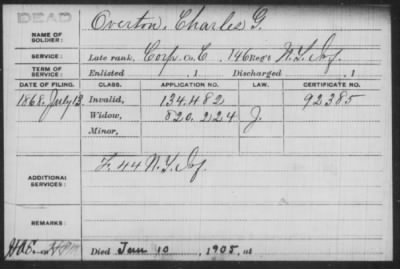 DEAD
NAME OF SOLDIER: Overton, Charles G.
SERVICE: Late rank, Corp. Co. C, 146 Reg't N.Y. Inf.
TERM OF SERVICE: Enlisted , 1 Discharged , 1
DATE OF FILING. CLASS. APPLICATION NO. LAW. CERTIFICATE NO.
1868. July 13 Invalid, 134.482 92385
Widow, 820.224 J.
Minor,
ADDITIONAL SERVICES: F. 44 N.Y. Inf.
REMARKS:
Died 10, 1905, at